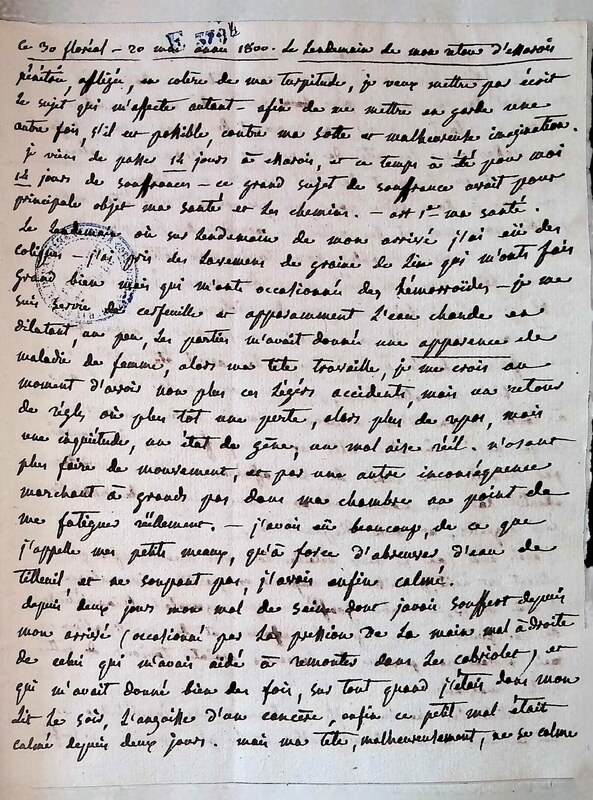 ce 30 floréal – 20 mai année 1800. Le Lendemain de mon retour d'Marois
pénitée, affligée, en colère de ma turpitude, je veux mettre par écrit
Le sujet qui m'affecte autant – afin de me mettre en garde une
autre fois, s'il est possible, contre ma sotte et malheureuse imagination.
je viens de passer 12 jours à Marois, et ce temps à été pour moi
12 jours de souffrances – ce grand sujet de souffrance avait pour
principale objet ma santé et les chemins. – art 1er ma santé.
Le Lendemain où sur Lendemain de mon arrivé j'ai eü des
coliques – j'ai pris des Lavemens de graine de Lin qui m'onts fais
Grand bien mais qui m'onts occasionnés des hémorroides – je me
suis servie de cerfeuille et apparamment L'eau chaude en
dilatant, un peu, les parties m'avait donné une apparence de
maladie de femme, alors ma tete travaille, je me crois au
moment d'avoir non plus ces Légérs accidents mais un retour
de régles où plus tot une perte, alors plus de repos, mais
une inquiétude, un état de gêne, un mal aise réel. n'osant
plus faire de mouvement, et par une autre inconséquence
marchant à grands pas dans ma chambre au point de
me fatiguer réellement. – j'avais eû beaucoup, de ce que
j'appelle mes petits meaux, qu'à force d'abreuver d'eau de
tilleuil et ne soupant pas, j'avais enfin calmé.
depuis deux jours mon mal de sein dont javais souffert depuis
mon arrivé (occasioné par La pression de La main mal àdroite
de celui qui m'avais aidé à remonter dans Le cabriolet) et
qui m'avait donné bien des fois, sur tout quand j'étais dans mon
Lit Le soir, L'angoisse d'un cancère, enfin ce petit mal était
calmé depuis deux jours. mais ma tete, malheureusement, ne se calme